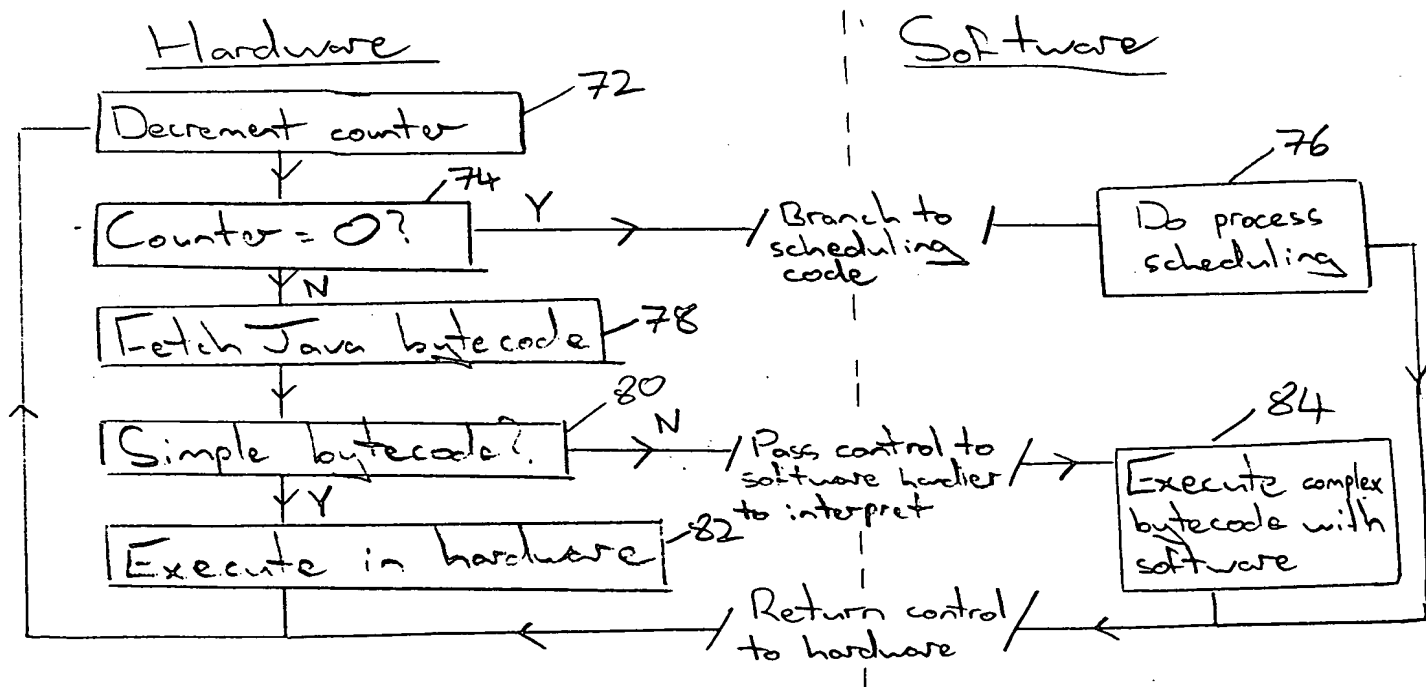 Hardware
Software
72
Decrement counter
76
74
Counter = 0?
Y
Branch to
scheduling
code
Do process
scheduling
N
78
Fetch Java bytecode
80
Simple bytecode?
N
Pass control to
software hardier
to interpret
84
Execute complex
bytecode with
software
Y
82
Execute in hardware
Return control
to hardware